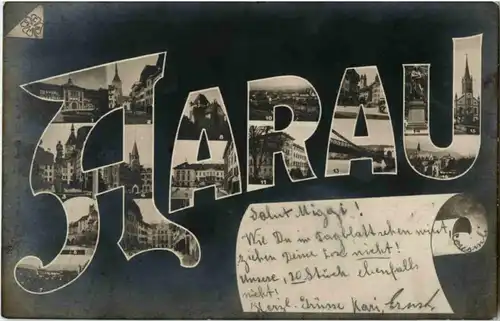 AARAU
Salut Miggi!
Wie Du im Tagblatt sehen wirst,
ziehen Deine Lose nicht!
Unsere, 20 Stück ebenfalls
nicht!
Herzl. Grüsse Kari, Ernst